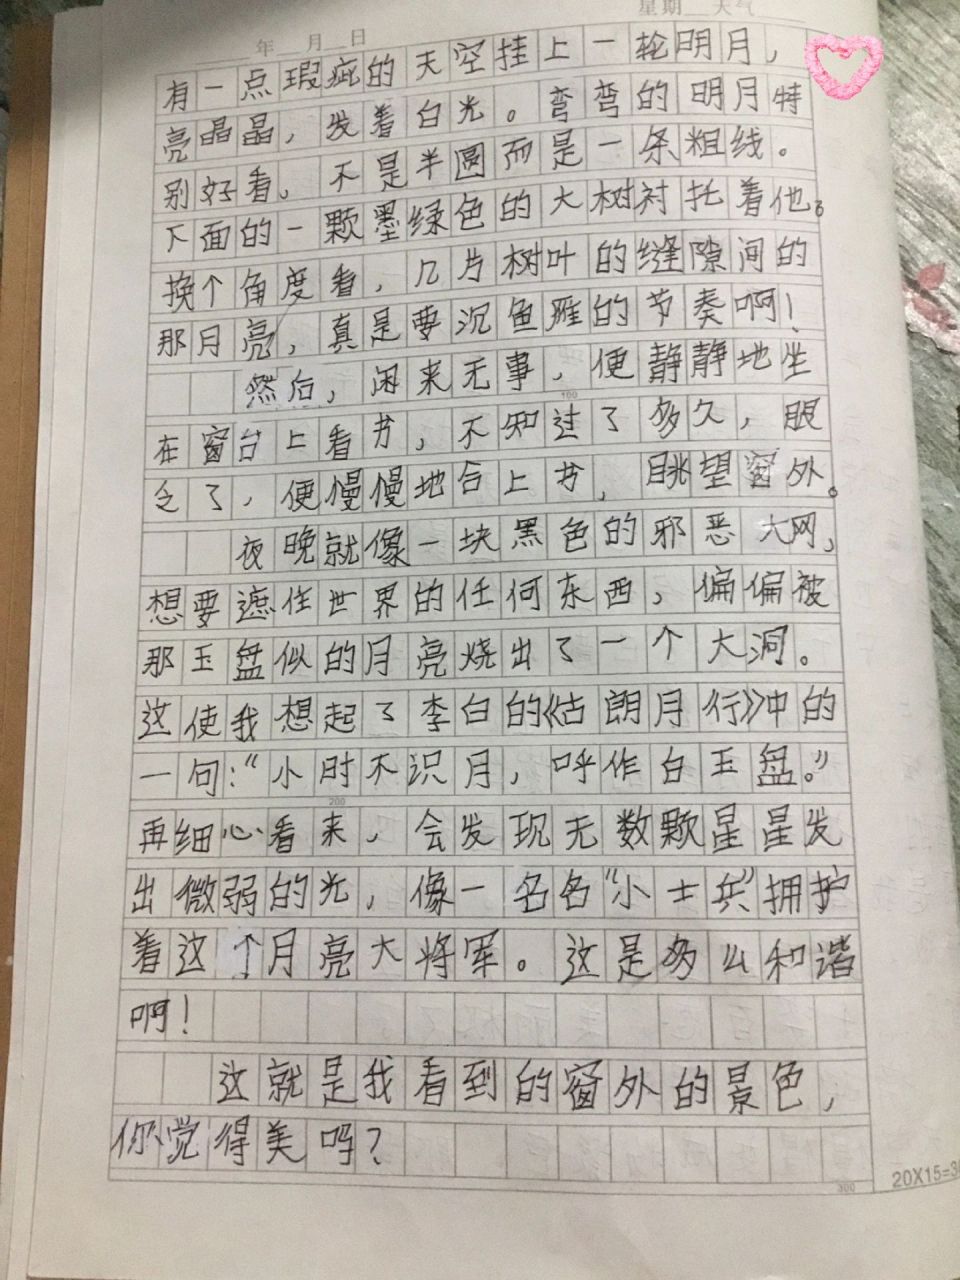 年 月 日 星期 天气
有一点瑕疵的天空挂上一轮明月，
亮晶晶，发着白光。弯弯的明月特
别好看。不是半圆而是一条粗线。
下面的一颗墨绿色的大树衬托着他。
换个角度看，几片树叶的缝隙间的
那月亮，真是要沉鱼雁的节奏啊！
然后，闲来无事，便静静地坐
100
在窗台上看书，不知过了多久，眼
乏了，便慢慢地合上书，眺望窗外。
夜晚就像一块黑色的邪恶大网，
想要遮住世界的任何东西，偏偏被
那玉盘似的月亮烧出了一个大洞。
这使我想起了李白的《古朗月行》中的
一句：“小时不识月，呼作白玉盘。”
200
再细心看来，会发现无数颗星星发
出微弱的光，像一名名“小士兵”拥护
着这个月亮大将军。这是多么和谐
啊！
这就是我看到的窗外的景色，
你觉得美吗？
300
20X15=3